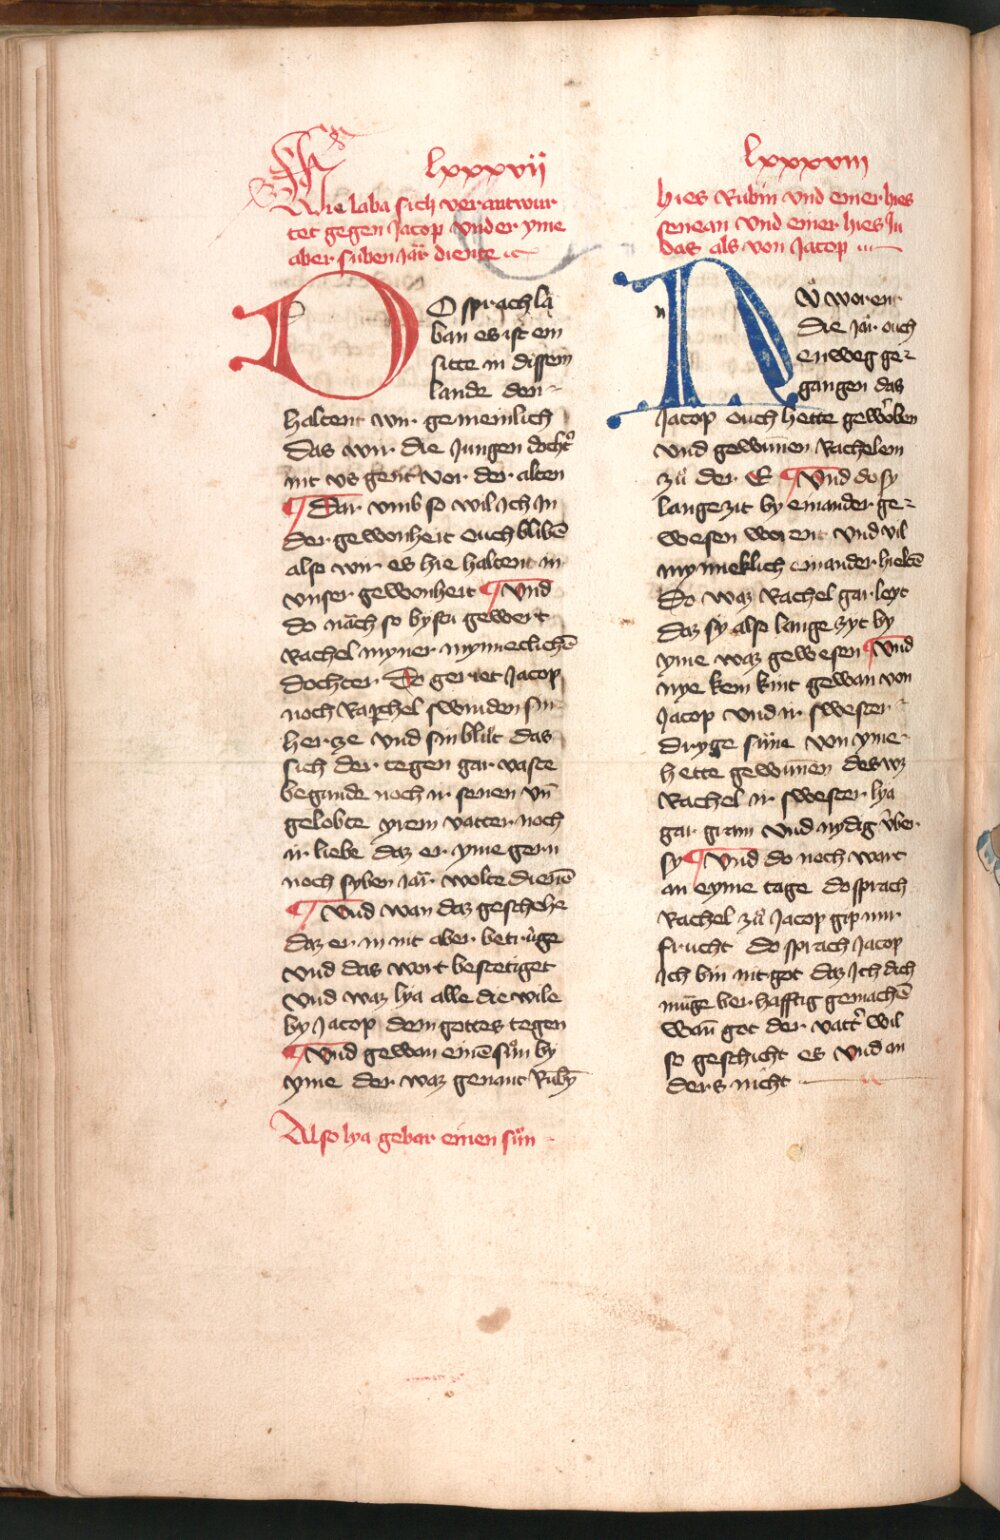 lxxxvii
Wie laba sich verantwur
tet gegen Jacop vnd er yme
aber suben Jar diente
DO sprach la
ban es ist ein
sitte in dissem
lande den
haltent wir gemeinlich
das wir die Jungen docht̾
nit vs gent vor der alten
¶ Dar vmb so wil ich In
der gewonheit ouch blibē
also wir es hie haltent in
vnser gewonheit ¶ Vnd
do nach so bystu gewert
Rachel myner mynneclichē
dochter Do geriet Jacop
noch Rachel swinden sin
herze vnd sin blůt das
sich der tegen gar vaste
begunde noch ir senen vn̄
gelobte yrem vatter noch
ir liebe daz er yme gern
noch syben Jar wolte dienē
¶ Vnd wan daz geschehe
daz er in nit aber betrůge
vnd das wort bestetiget
vnd waz lya alle die wile
by Jacop dem gottes tegen
¶ Vnd gewan einē sůn by
yme der waz genant Rubȳ
Also lya gebar einen sůn
lxxxviii
hies Rubin vnd einer hies
semean vnd einer hies Ju
das als von Jacop
NV worent
die Jar ouch
enweg ge
gangen das
Jacop ouch hette geworben
vnd gewunnen Rachelem
zů der E ¶ Vnd do sy
lange zit by einander ge
wesen worent vnd vil
mynneklich einander hieltē
Do waz Rachel gar leyt
daz sy also lange zyt by
yme waz gewesen ¶ Vnd
nye kein kint gewan von
Jacop vnd ir swester
dryge sůne von yme
hette gewunnen des wz
Rachel ir swester lya
gar gram vnd nydig vber
sy ¶ Vnd do noch wart
an eyme tage do sprach
Rachel zů Jacop gip mir
frucht do sprach Jacop
Ich bin nit got daz Ich dich
můge berhafftig gemachē
wan̄ got der vatt̾ wil
so geschicht es vnd an
ders nicht